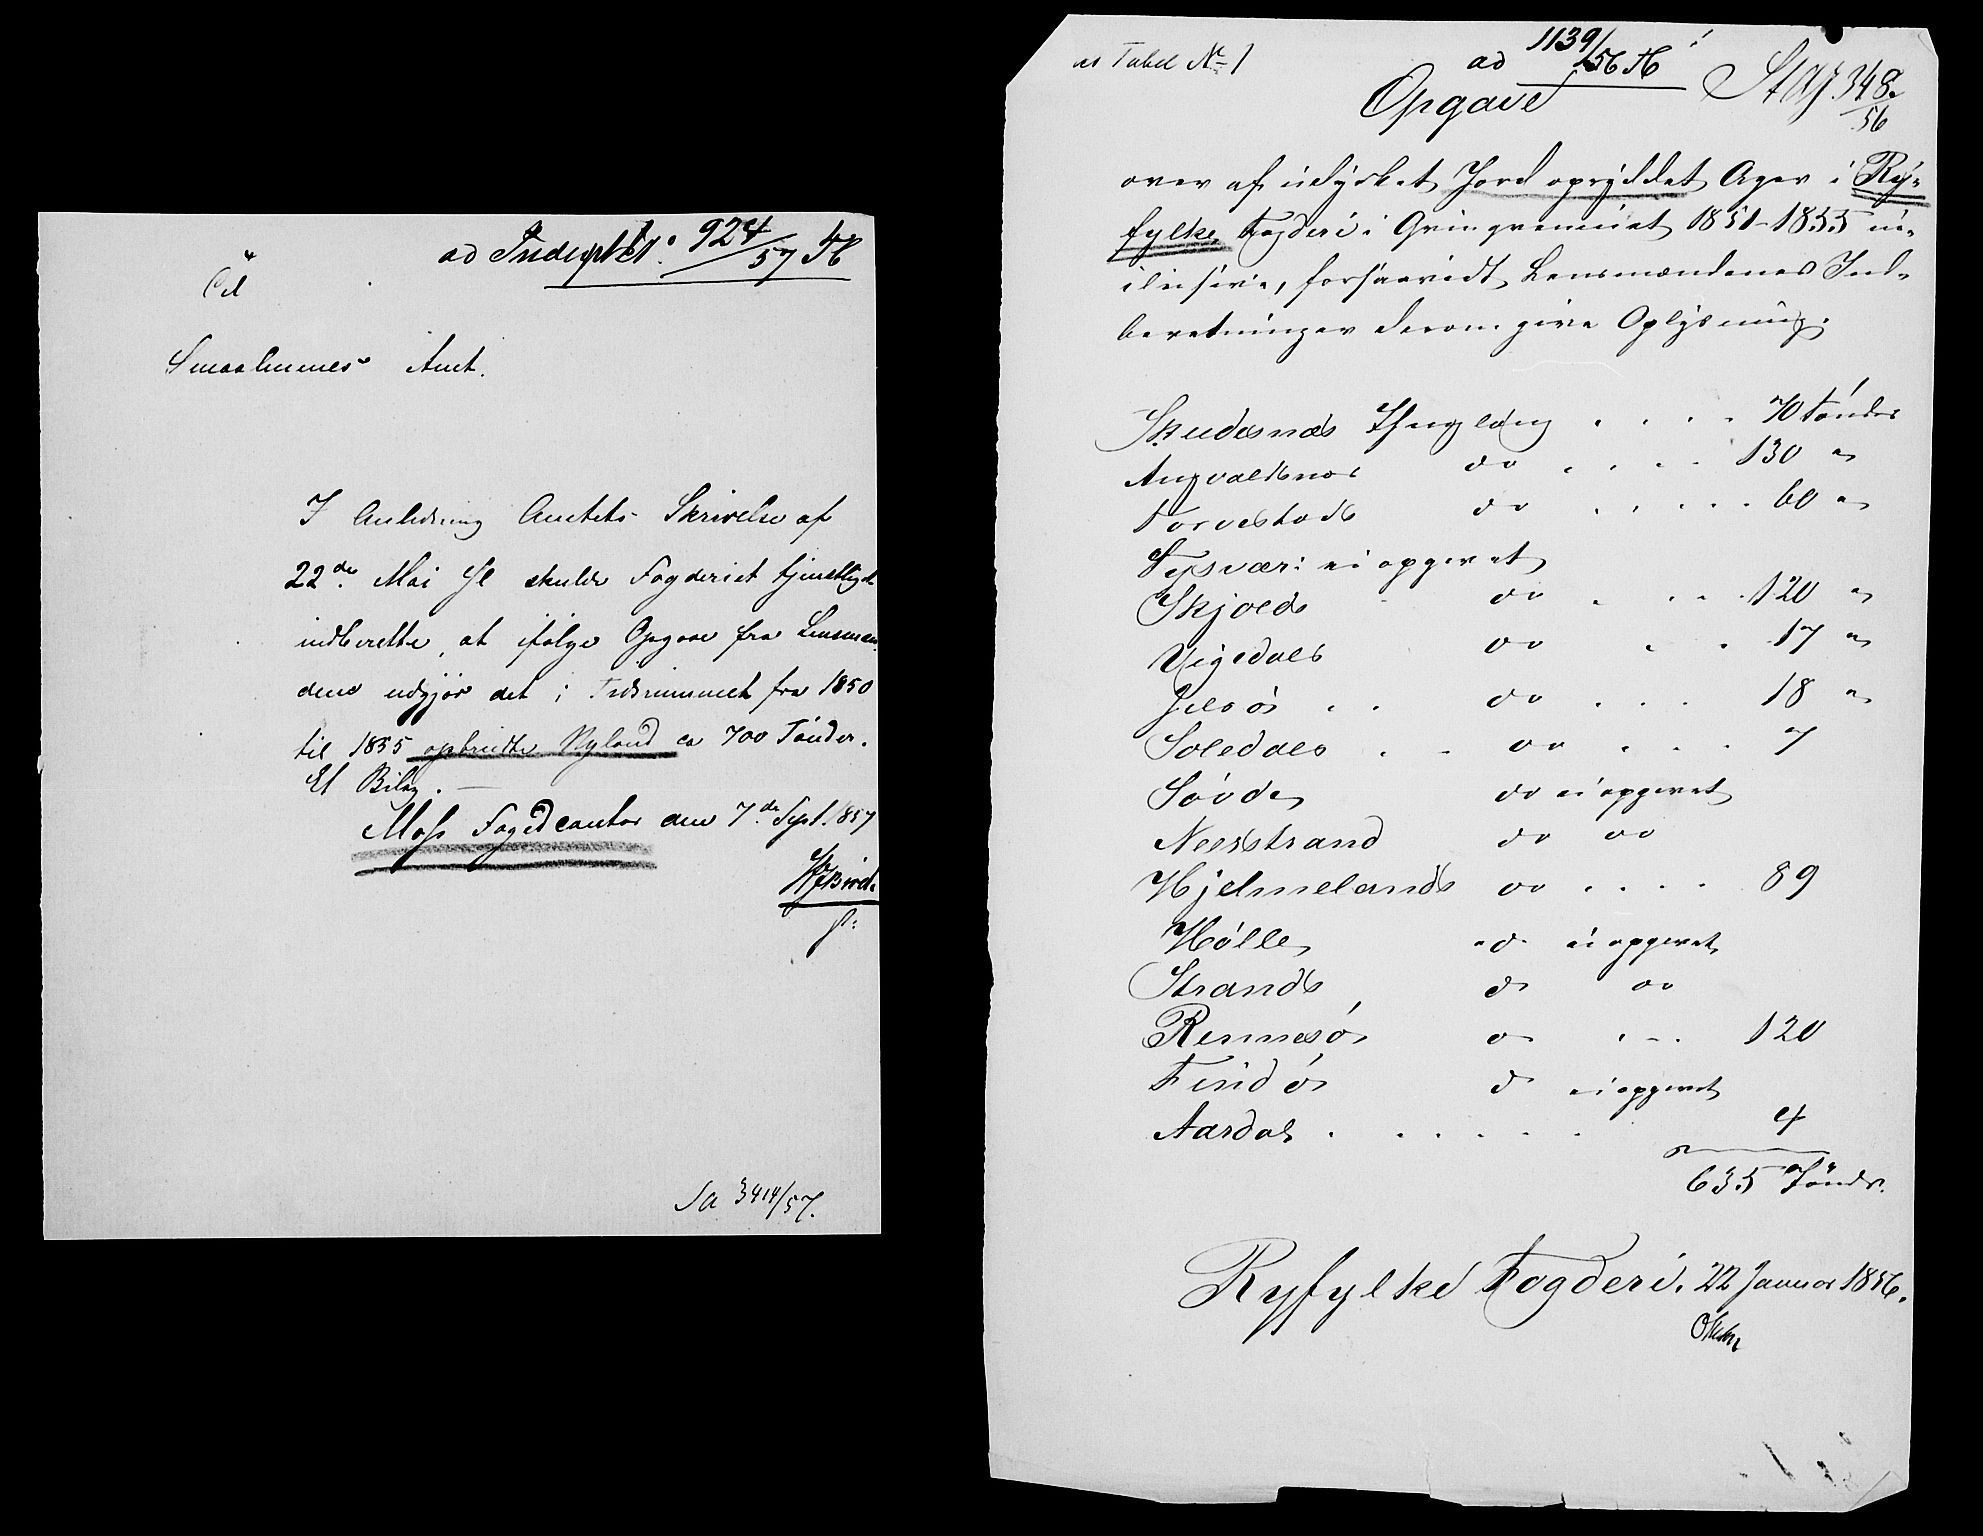 ad Indept. 924/57 H
Til
Smaalenenes Amt.
I Anledning Amtets Skrivelse af
22de Mai f.A. skulde Fogderiet tjenstligst
indberette, at ifølge Opgave fra Lensmæn-
dene udgjør det i Tidsrummet fra 1850
til 1855 opbrudte Nyland ca 700 Tønder.
Et Bilag.
Moss Fogedcontor den 7de Sept. 1857
Sa 3414/57.
ad Tabel No 1
ad 1139/56 H
348/56
Opgave
over af udyrket Jord opryddet Ager i Ry-
fylke Fogderi i Qvinqvenniet 1851-1855 in-
clusive, forsaavidt Lensmændenes Ind-
beretninger derom give Oplysning.
Skudesnæs Thinglaug . . . . 70 Tønder
Augvaldsnes do . . . . 130 "
Torvestads do . . . . . 60 "
Tysvær: ei opgivet
Skjolds do . . . . 120 "
Vigedals do . . 17 "
Jelsø . . do . . . 18 "
Soledals . . do . . . 7
Søvde do ei opgivet
Nerstrand do do
Hjelmelands do . . . . 89
Hølle do ei opgivet
Strands do do
Rennesø do . . . 120
Findø do ei opgivet
Aardals . . . . . . 4
635 Tønder.
Ryfylke Fogderi, 22 Januar 1856.